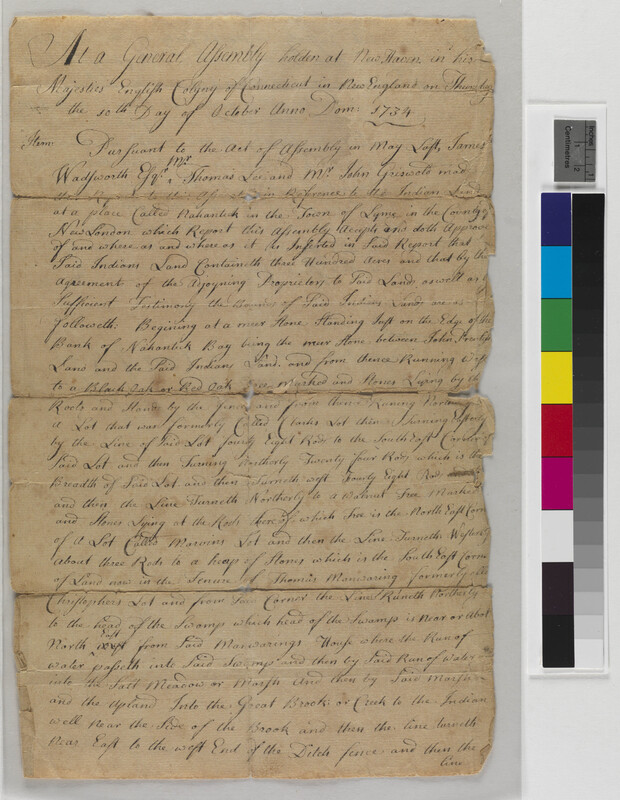 At a General Assembly holden at New Haven in his
Majesties English Colony of Connecticut in New England on Thursday
the 10th Day of October Anno Dom: 1734
Item
Pursuant to the Act of Assembly in May Last, James
Wadsworth Esqr. Mr. Thomas Lee and Mr. John Griswold mad
in Reference to the Indian Land
at a place Called Nahantick in the Town of Lyme in the County of
New London which Report this Assembly Accepts and doth Approve
of and where as and where as it is Inserted in Said Report that
Said Indians Land Containeth three Hundred Acres and that by the
agreement of the Adjoyning Proprietors to Said Land as well as by
Sufficient Testimony the Bounds of Said Indians Land are as
followeth: Begining at a meer stone Standing Just on the Edge of the
Bank of Nahantick Bay being the meer stone between John Prentis
Land and the Said Indians Land. and from thence Running West
to a Black Oak or Red Oak Tree Marked and Stones Lying by the
Roots and Stands by the fence and from thence Runing
a Lot that was formerly Called Clarks Lot then Turning Easterly
by the Line of Said Lot fourty Eight Rods to the South East Corner of
Said Lot and then Turning Northerly Twenty four Rods which is the
Breadth of Said Lot and then Turneth west fourty Eight Rods
and then the Line Turneth Northerly to a Walnut Tree Marked
and Stones Lying at the Roots thereof which Tree is the North East Corner
of a Lot Called Marvins Lot and then the Line Turneth Westerly
about three Rods to a heap of Stones which is the South East Corner
of Land now in the Tenure of Thomas Manwaring formerly
Christophers Lot and from Said Corner the Line Runeth Northerly
to the head of the Swamps which head of the Swamps is Near or About
North East from Said Manwarings House where the Run of
water passeth into Said Swamps and then by Said Run of Water
into the Salt Meadow or Marsh And then by Said Marsh
and the Upland Into the Great Brook or Creek to the Indian
well Near the Side of the Brook and then the line turneth
Near East to the west End of the Ditch fence and then the
line
Centimetres
Inches